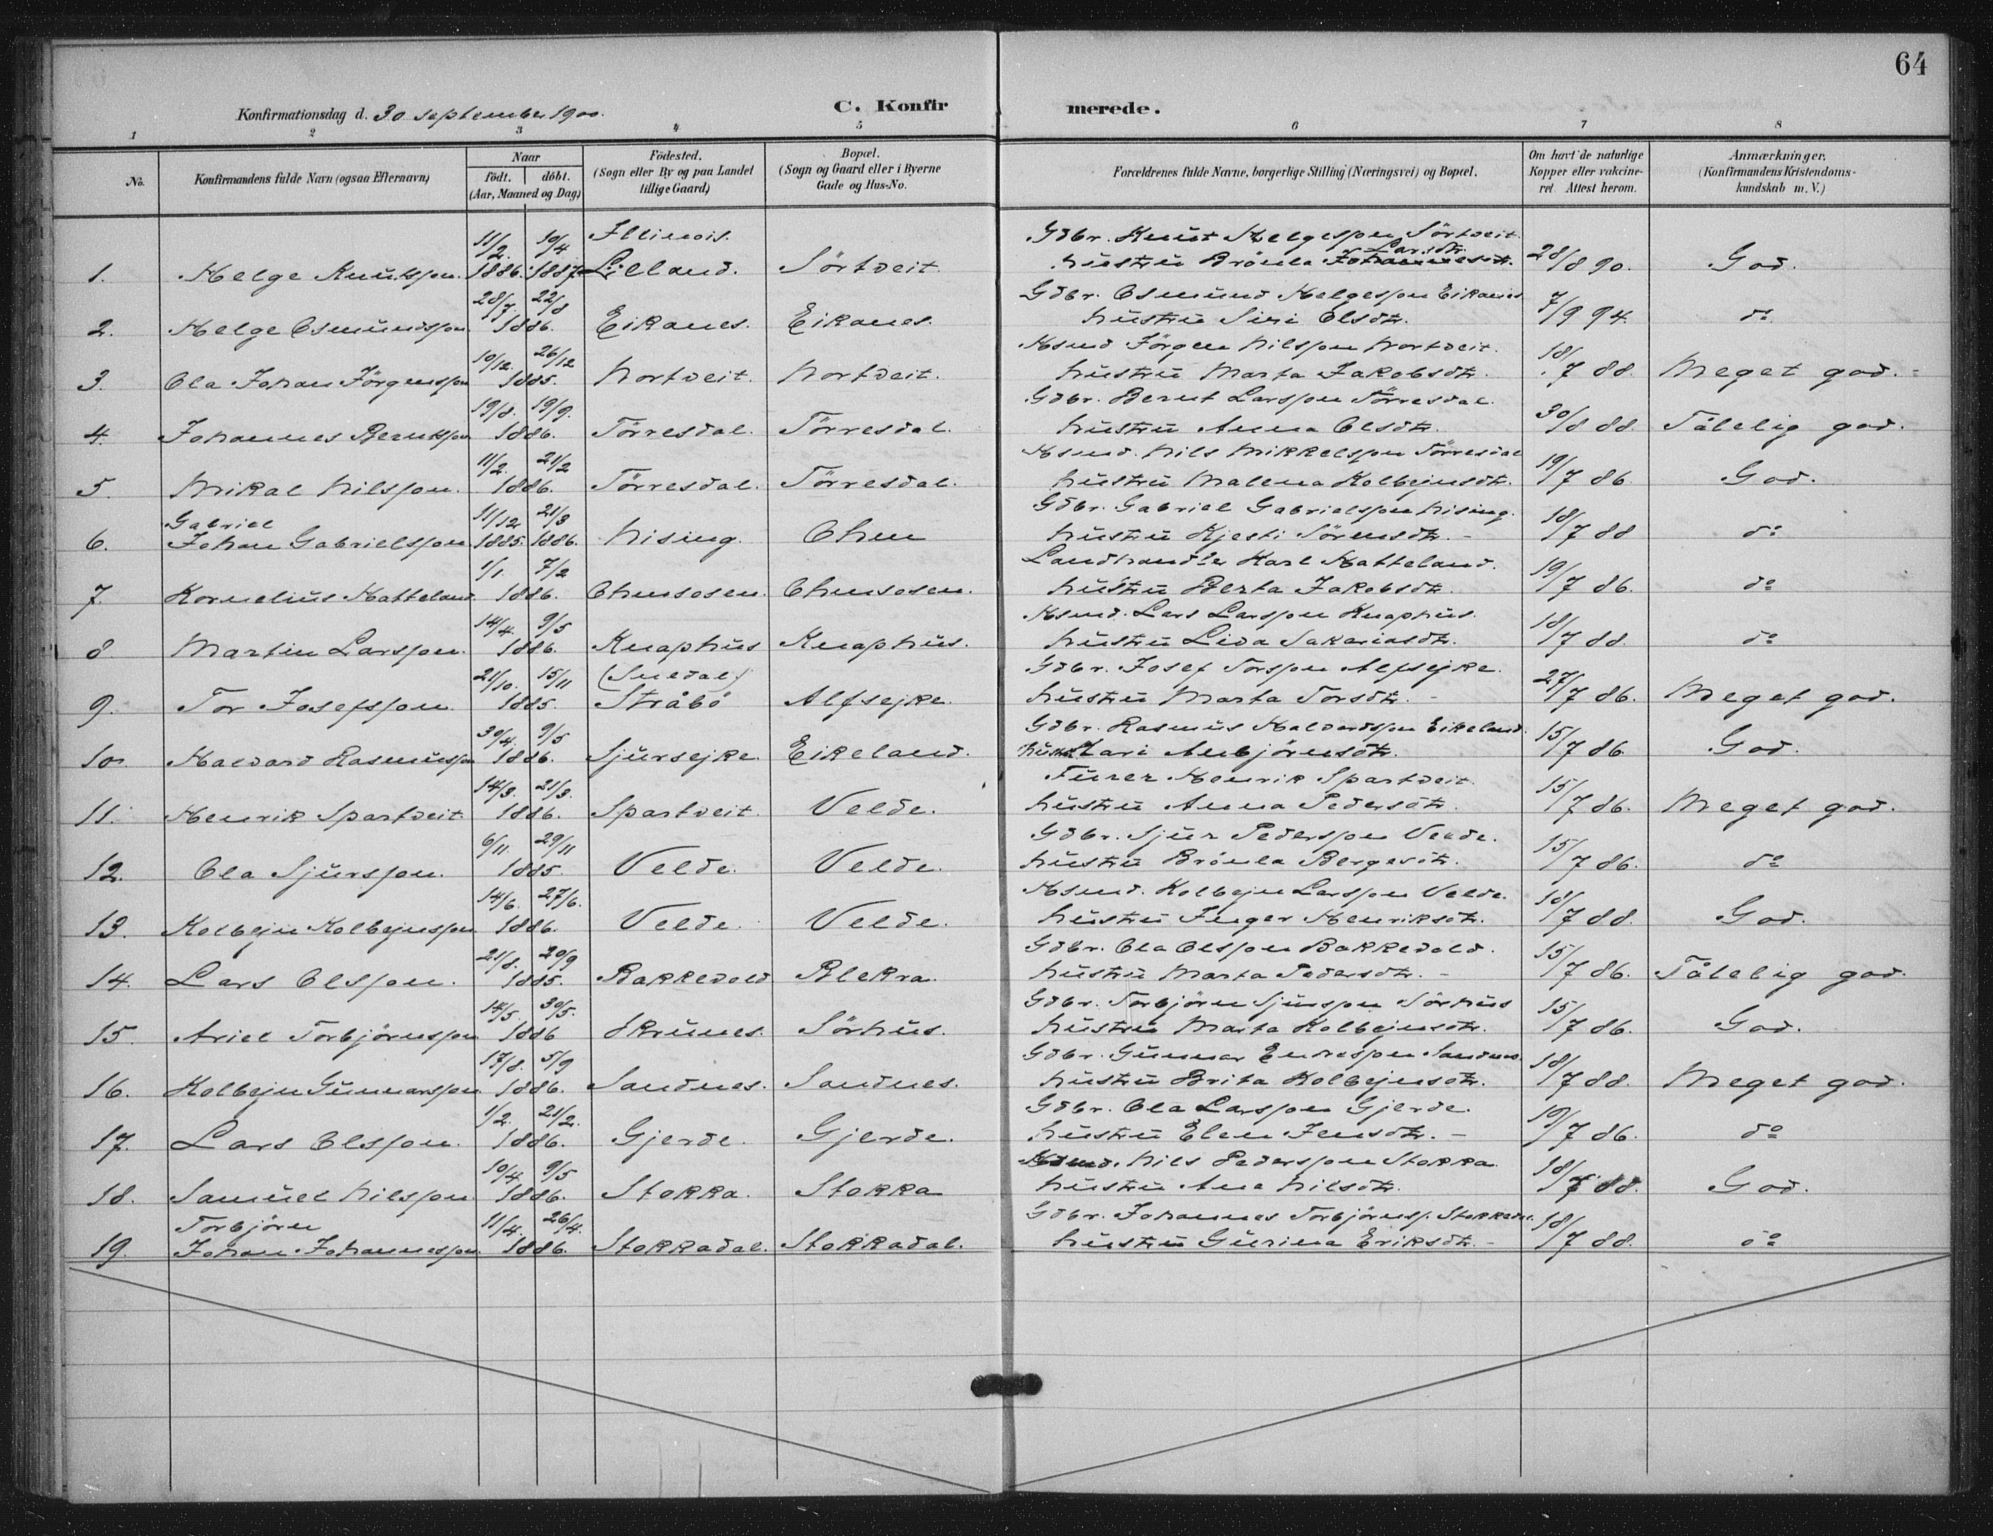 64
Konfirmationsdag d. 30 september 1900.
C. Konfirmerede.
1 2 3 4 5 6 7 8
No. Konfirmandens fulde Navn (ogsaa Efternavn) Naar födt. döbt. (Aar, Maaned og Dag) Födested. (Sogn eller By og paa Landet tillige Gaard) Bopæl. (Sogn og Gaard eller i Byerne Gade og Hus-No.) Forældrenes fulde Navne, borgerlige Stilling (Næringsvei) og Bopæl. Om havt de naturlige Kopper eller vakcineret. Attest herom. Anmærkninger. (Konfirmandens Kristendomskundskab m. V.)
11/2 10/4 Illinois. Gdbr. Knut Helgesson Sörtveit.
1. Helge Knutsson. 1886. 1887 Lilland. Sörtveit hustru Brönla Larsdtr. 28/8 90. God.
28/7 22/8 Gdbr. Osmund Helgesson Eikanes
2. Helge Osmundsson 1886. Eikanes. Eikanes. hustru Siri Olsdtr. 7/9 94. do
10/12. 26/12 Hsmd Jörgen Nilsson Nortveit.
3. Ola Johan Jörgensson 1885. Nortveit. Nortveit. hustru Marta Jakobsdtr. 18/7 88. Meget god.
19/8. 19/9. Gdbr. Bernt Larsson Törresdal.
4. Johannes Berntsson 1886. Törresdal. Törresdal. hustru Anna Olsdtr. 30/8 88. Tålelig god.
11/2. 21/2 Hsmd. Nils Mikkelsson Törresdal
5. Mikal Nilsson. 1886. Törresdal. Törresdal. hustru Malena Kolbejnsdtr. 19/7 86. God.
Gabriel 11/12 21/3 Gdbr. Gabriel Gabrielsson Nising.
6. Johan Gabrielsson 1885. 1886. Nising. Ohm hustru Kjesti Sörensdtr. 18/7 88 do
1/1. 7/2 Landhandler Karl Hatteland.
7. Kornelius Hatteland 1886. Ohmsosen. Ohmsosen. hustru Berta Jakobsdtr. 19/7 86. do
14/4. 9/5 Hsmd. Lars Larsson Knaphus.
8 Martin Larsson. 1886. Knaphus Knaphus. hustru Lida Sakariasdtr. 18/7 88. do
21/10. 15/11 (Suldal) Gdbr. Josef Torsson Alfsejke.
9. Tor Josefsson. 1885. Stråbö Alfsejke. hustru Marta Torsdtr. 27/7 86. Meget god.
30/4. 9/5 Gdbr. Rasmus Halvardsson Eikeland.
10. Halvard Rasmusson 1886. Sjursejke. Eikeland. hustru Lari Anbjörnsdtr. 15/7 86 God.
14/3. 21/3. Furer Henrik Spartveit.
11. Henrik Spartveit. 1886. Spartveit. Velde. hustru Anna Pedersdtr. 15/7 86. Meget god.
6/11. 29/11 Gdbr. Sjur Pedersson Velde.
12. Ola Sjursson. 1885. Velde. Velde. hustru Brönla Bergesdtr. 15/7 86. do
14/6. 27/6. Hsmd. Kolbejn Larsson Velde.
13. Kolbejn Kolbejnsson 1886. Velde. Velde. hustru Inger Henriksdtr. 18/7 88. God.
21/8. 20/9 Gdbr. Ola Olsson Bakkevold.
14. Lars Olsson. 1885. Bakkevold Blekra. hustru Marta Pedersdtr. 15/7 86. Tålelig god.
14/5. 30/5. Gdbr. Torbjörn Sjursson Sörhus
15. Ariel Torbjörnsson 1886 Skrunes. Sörhus. hustru Marta Kolbejnsdtr. 15/7 86. God.
17/8. 5/9 Gdbr. Gunnar Endresson Sandnes.
16. Kolbejn Gunnarsson 1886. Sandnes. Sandnes. hustru Brita Kolbejnsdtr. 18/7 88. Meget god.
1/2. 21/2. Gdbr. Ola Larsson Gjerde.
17. Lars Olsson. 1886. Gjerde. Gjerde. hustru Elen Jensdtr. 19/7 86. do
10/4. 9/5 Hsmd. Nils Pedersson Stokka
18. Samuel Nilsson 1886. Stokka. Stokka hustru Ana Nilsdtr. 18/7 88. God.
Torbjörn 11/4. 26/4. Gdbr. Johannes Torbjörnss. Stokkadal.
19. Johan Johannesson 1886. Stokkadal. Stokkadal. hustru Gurina Eriksdtr. 18/7 88. do